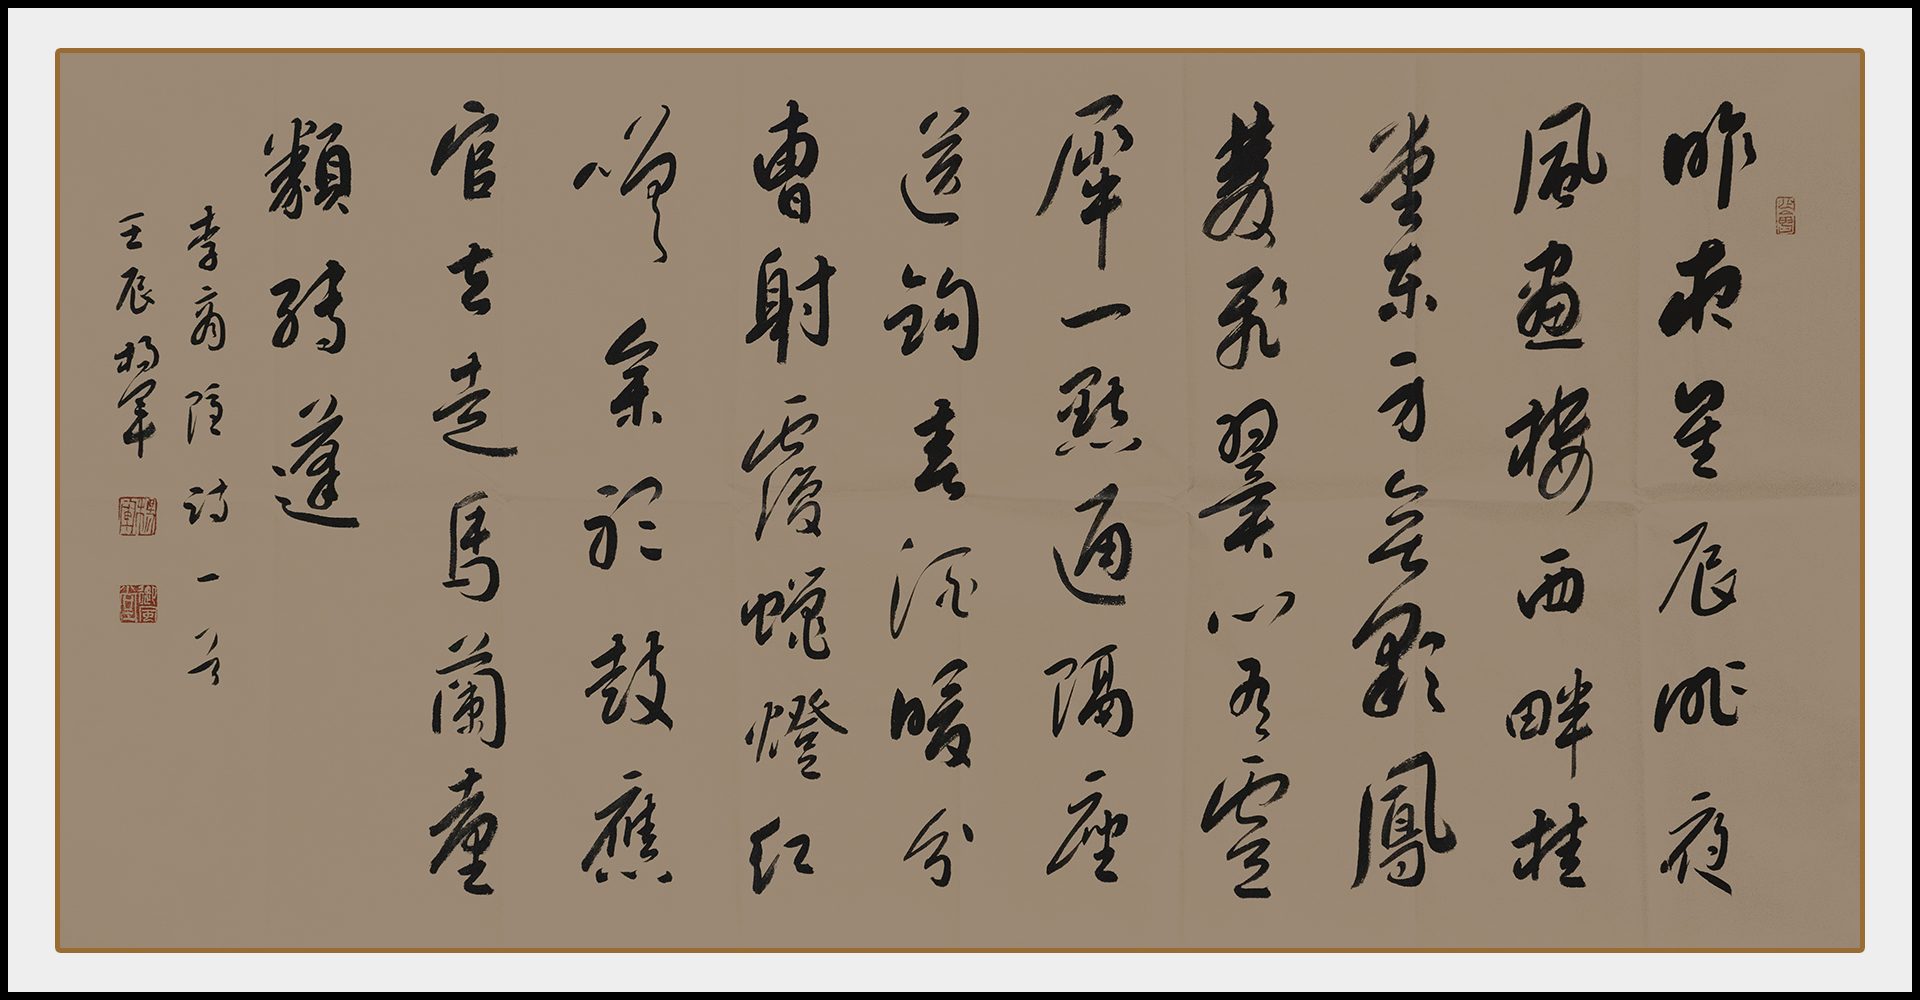 昨夜星辰昨夜
風畫樓西畔桂
堂東身無彩鳳
雙飛翼心有靈
犀一點通隔座
送鈎春酒暖分
曹射覆蠟燈紅
嗟余聽鼓應
官去走馬蘭臺
類轉蓬
李商隱詩一首
壬辰楊軍
楊軍